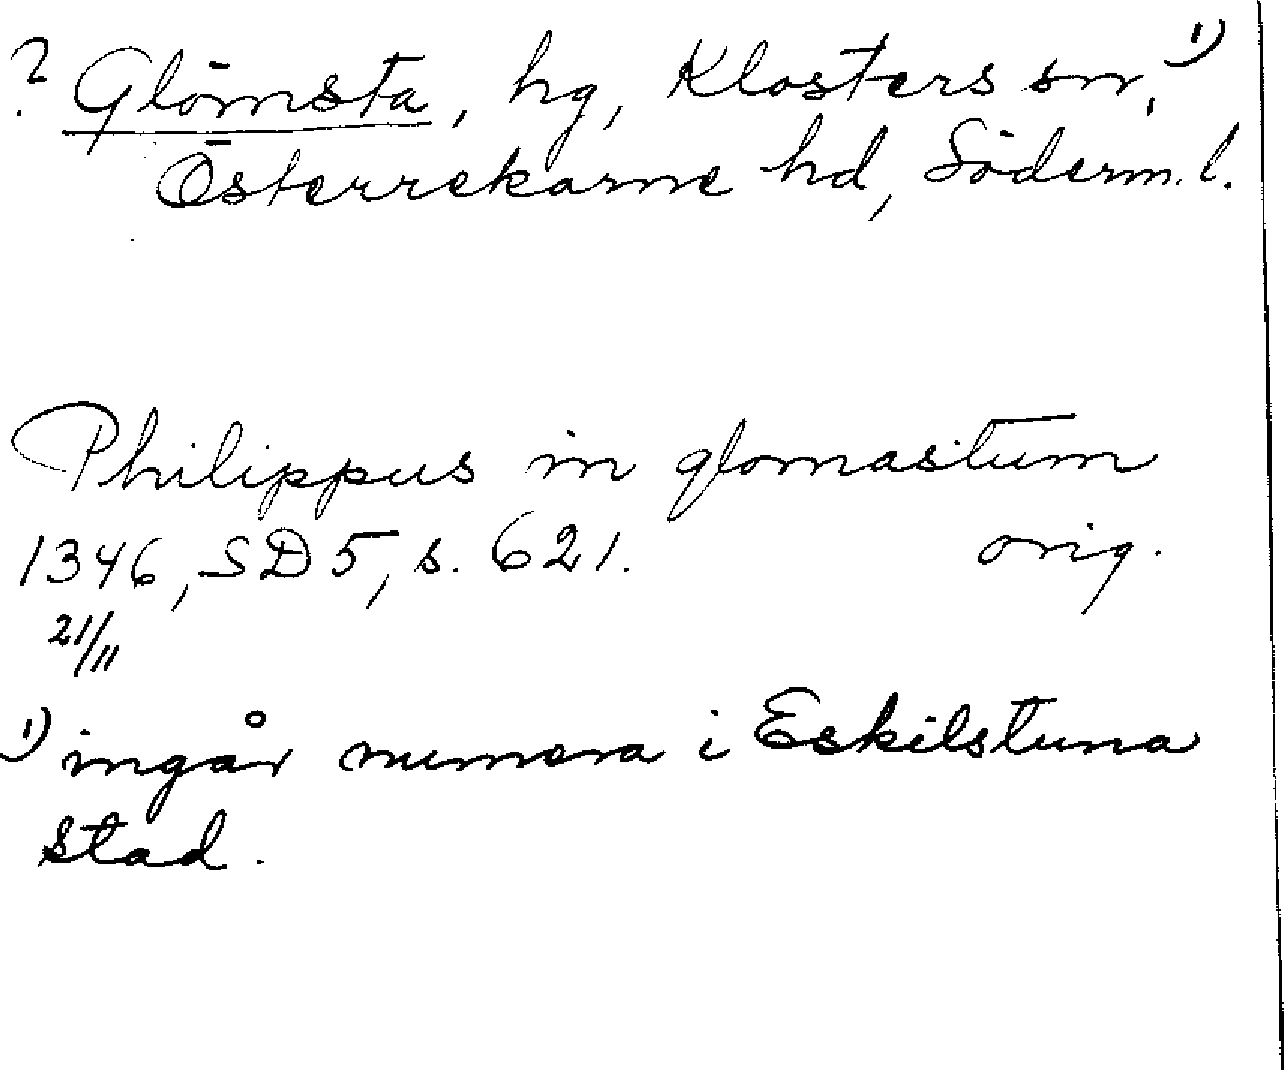 ? Glömsta, hg, Klosters sn,¹⁾
Österrekarne hd, Söderm. l.
Philippus in glomastum
1346, SD 5, s. 621. orig.
21/11
¹⁾ ingår numera i Eskilstuna
stad.